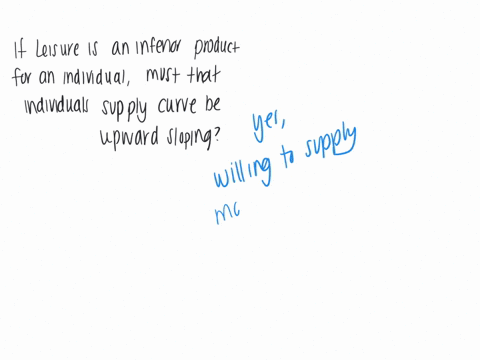 If Leisure is an inferior product
for an individual, must that
individuals supply curve be
upward sloping?
yes,
willing to supply
mo